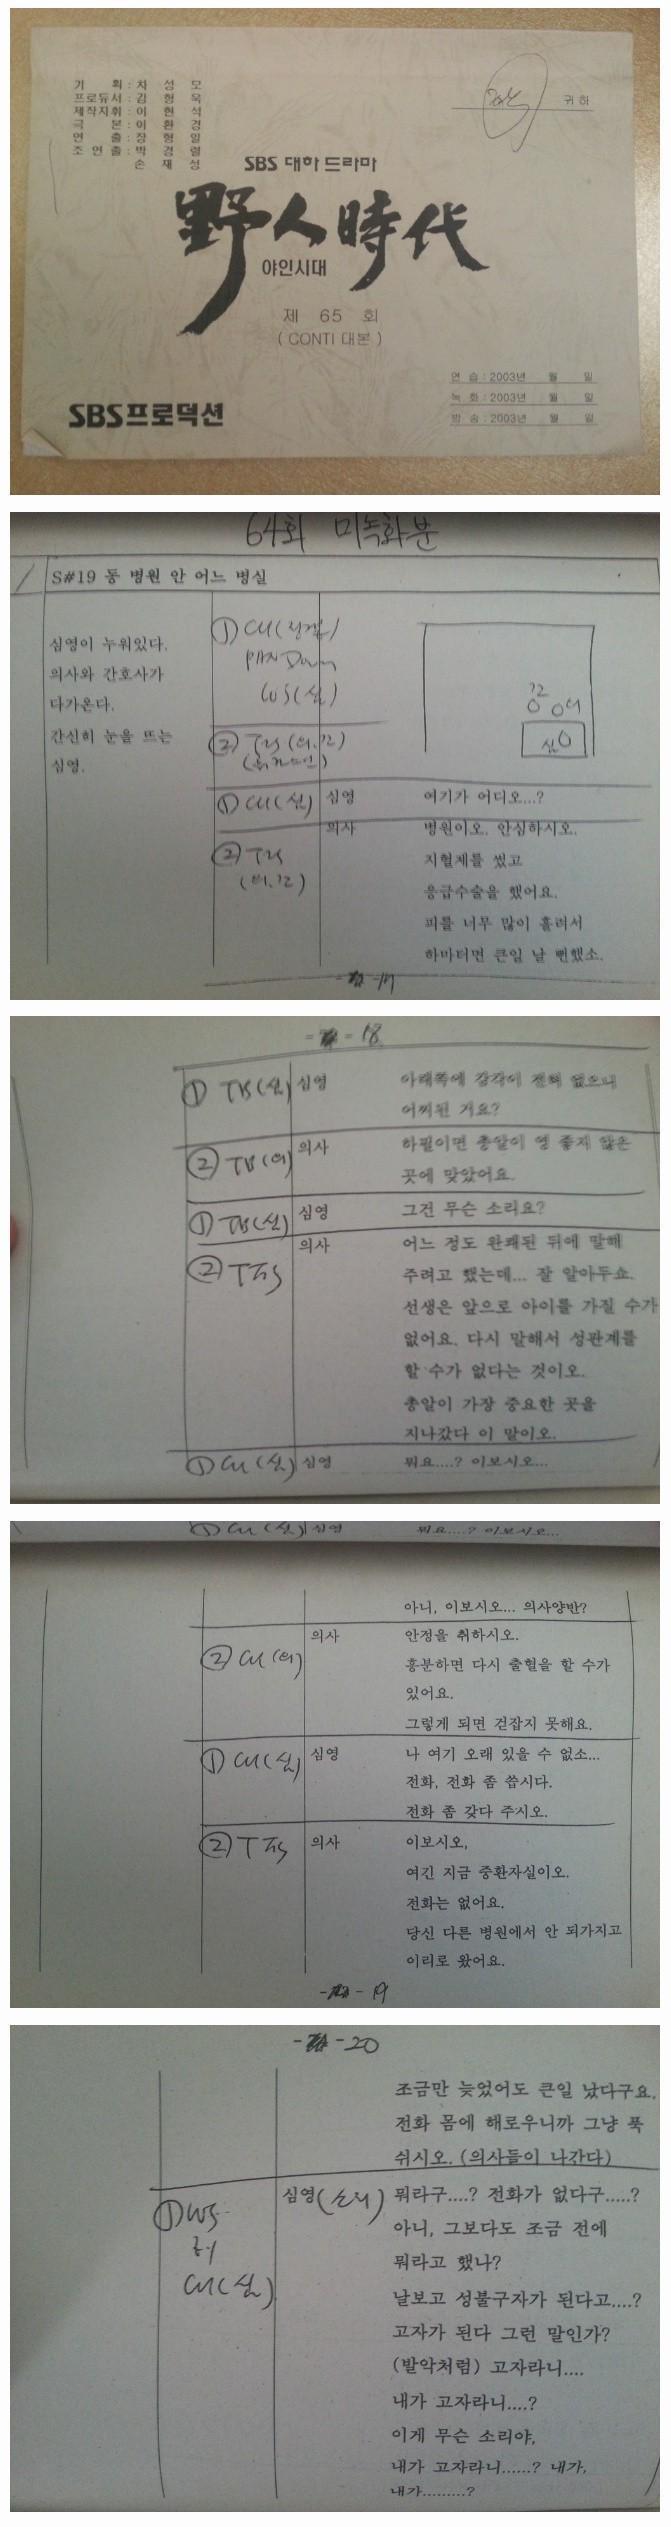 기 획 : 차 성 모
프로듀서 : 김 형 욱
제작지휘 : 이 현 석
극 본 : 이 환 경
연 출 : 장 형 일
조 연 출 : 박 경 렬
손 재 성
귀하
SBS 대하 드라마
野人時代
야인시대
제 65 회
( CONTI 대본 )
연 습 : 2003년 월 일
녹 화 : 2003년 월 일
방 송 : 2003년 월 일
SBS프로덕션
64회 미녹화분
S#19 동 병원 안 어느 병실
심영이 누워있다.
의사와 간호사가
다가온다.
간신히 눈을 뜨는
심영.
① CU(
PAN Down
WS(심)
②
① CU(심) 심영 여기가 어디오...?
② 의사 병원이오. 안심하시오.
지혈제를 썼고
응급수술을 했어요.
피를 너무 많이 흘려서
하마터면 큰일 날 뻔했소.
- 17
- 18
① TB(심) 심영 아래쪽에 감각이 전혀 없으니
어찌된 거요?
② TB(의) 의사 하필이면 총알이 영 좋지 않은
곳에 맞았어요.
① TB(심) 심영 그건 무슨 소리요?
② 의사 어느 정도 완쾌된 뒤에 말해
주려고 했는데... 잘 알아두쇼.
선생은 앞으로 아이를 가질 수가
없어요. 다시 말해서 성관계를
할 수가 없다는 것이오.
총알이 가장 중요한 곳을
지나갔다 이 말이오.
① CU(심) 심영 뭐요....? 이보시오...
① CU(심) 심영 뭐요....? 이보시오...
아니, 이보시오... 의사양반?
② CU(의) 의사 안정을 취하시오.
흥분하면 다시 출혈을 할 수가
있어요.
그렇게 되면 걷잡지 못해요.
① CU(심) 심영 나 여기 오래 있을 수 없소...
전화, 전화 좀 씁시다.
전화 좀 갖다 주시오.
② 의사 이보시오,
여긴 지금 중환자실이오.
전화는 없어요.
당신 다른 병원에서 안 되가지고
이리로 왔어요.
- 19
- 20
조금만 늦었어도 큰일 났다구요.
전화 몸에 해로우니까 그냥 푹
쉬시오. (의사들이 나간다)
① WS 심영(소리) 뭐라구....? 전화가 없다구.....?
CU(심) 아니, 그보다도 조금 전에
뭐라고 했나?
날보고 성불구자가 된다고....?
고자가 된다 그런 말인가?
(발악처럼) 고자라니....
내가 고자라니....?
이게 무슨 소리야,
내가 고자라니......? 내가,
내가.........?